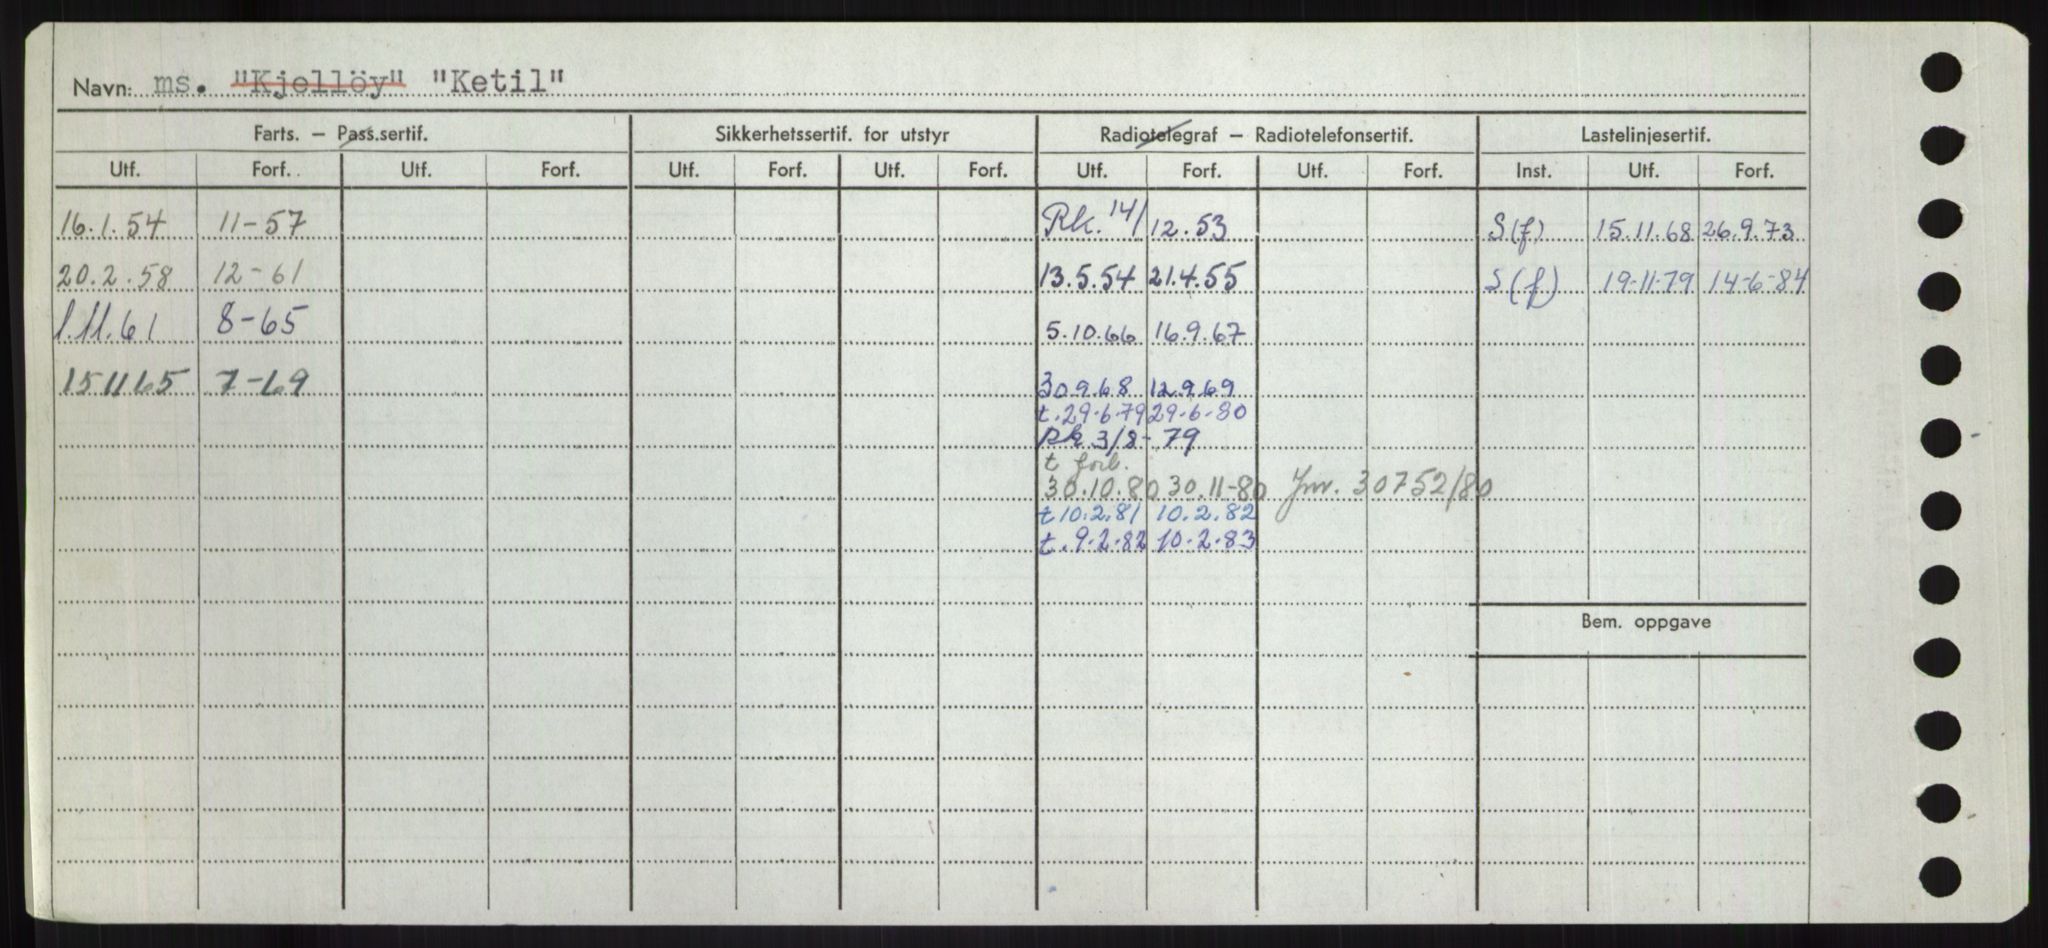 Navn: ms. "Kjellöy" "Ketil"
Farts. – Pass.sertif. Sikkerhetssertif. for utstyr Radiotelegraf – Radiotelefonsertif. Lastelinjesertif.
Utf. Forf. Utf. Forf. Utf. Forf. Utf. Forf. Utf. Forf. Utf. Forf. Inst. Utf. Forf.
16.1.54 11-57 Rk. 14/12.53 S(f) 15.11.68 26.9.73
20.2.58 12-61 13.5.54 21.4.55 S(f) 19-11-79 14-6-84
1.11.61 8-65 5.10.66 16.9.67
15 11 65 7-69 30.9.68 12.9.69
t.29-6-79 29-6-80
Rk 3/8-79
t forl.
30.10.80 30.11-80 Jnr. 30752/80
t 10.2.81 10.2.82
t. 9-2-82 10-2-83
Bem. oppgave